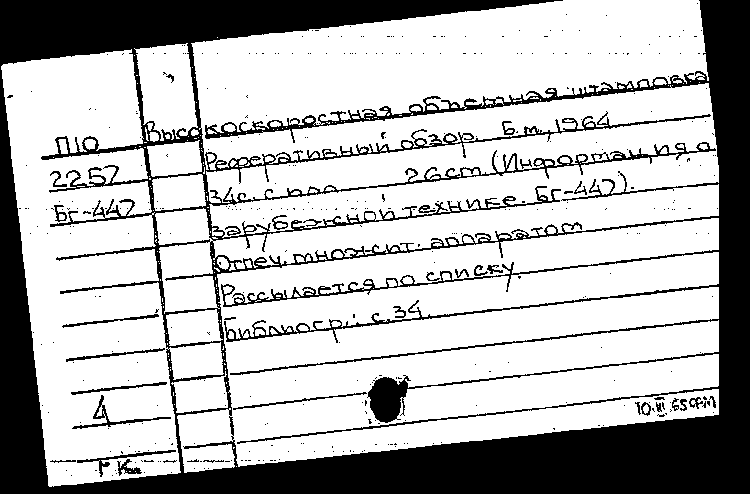 Высокоскоростная объемная штамповка
П10
Реферативный обзор. Б.м., 1964
2257
34с. с илл. 26cm. (Информация о
Бг-447
зарубежной технике. Бг-447).
Отпеч. множит. аппаратом
Рассылается по списку.
Библиогр.: с.34.
4
10.III.65